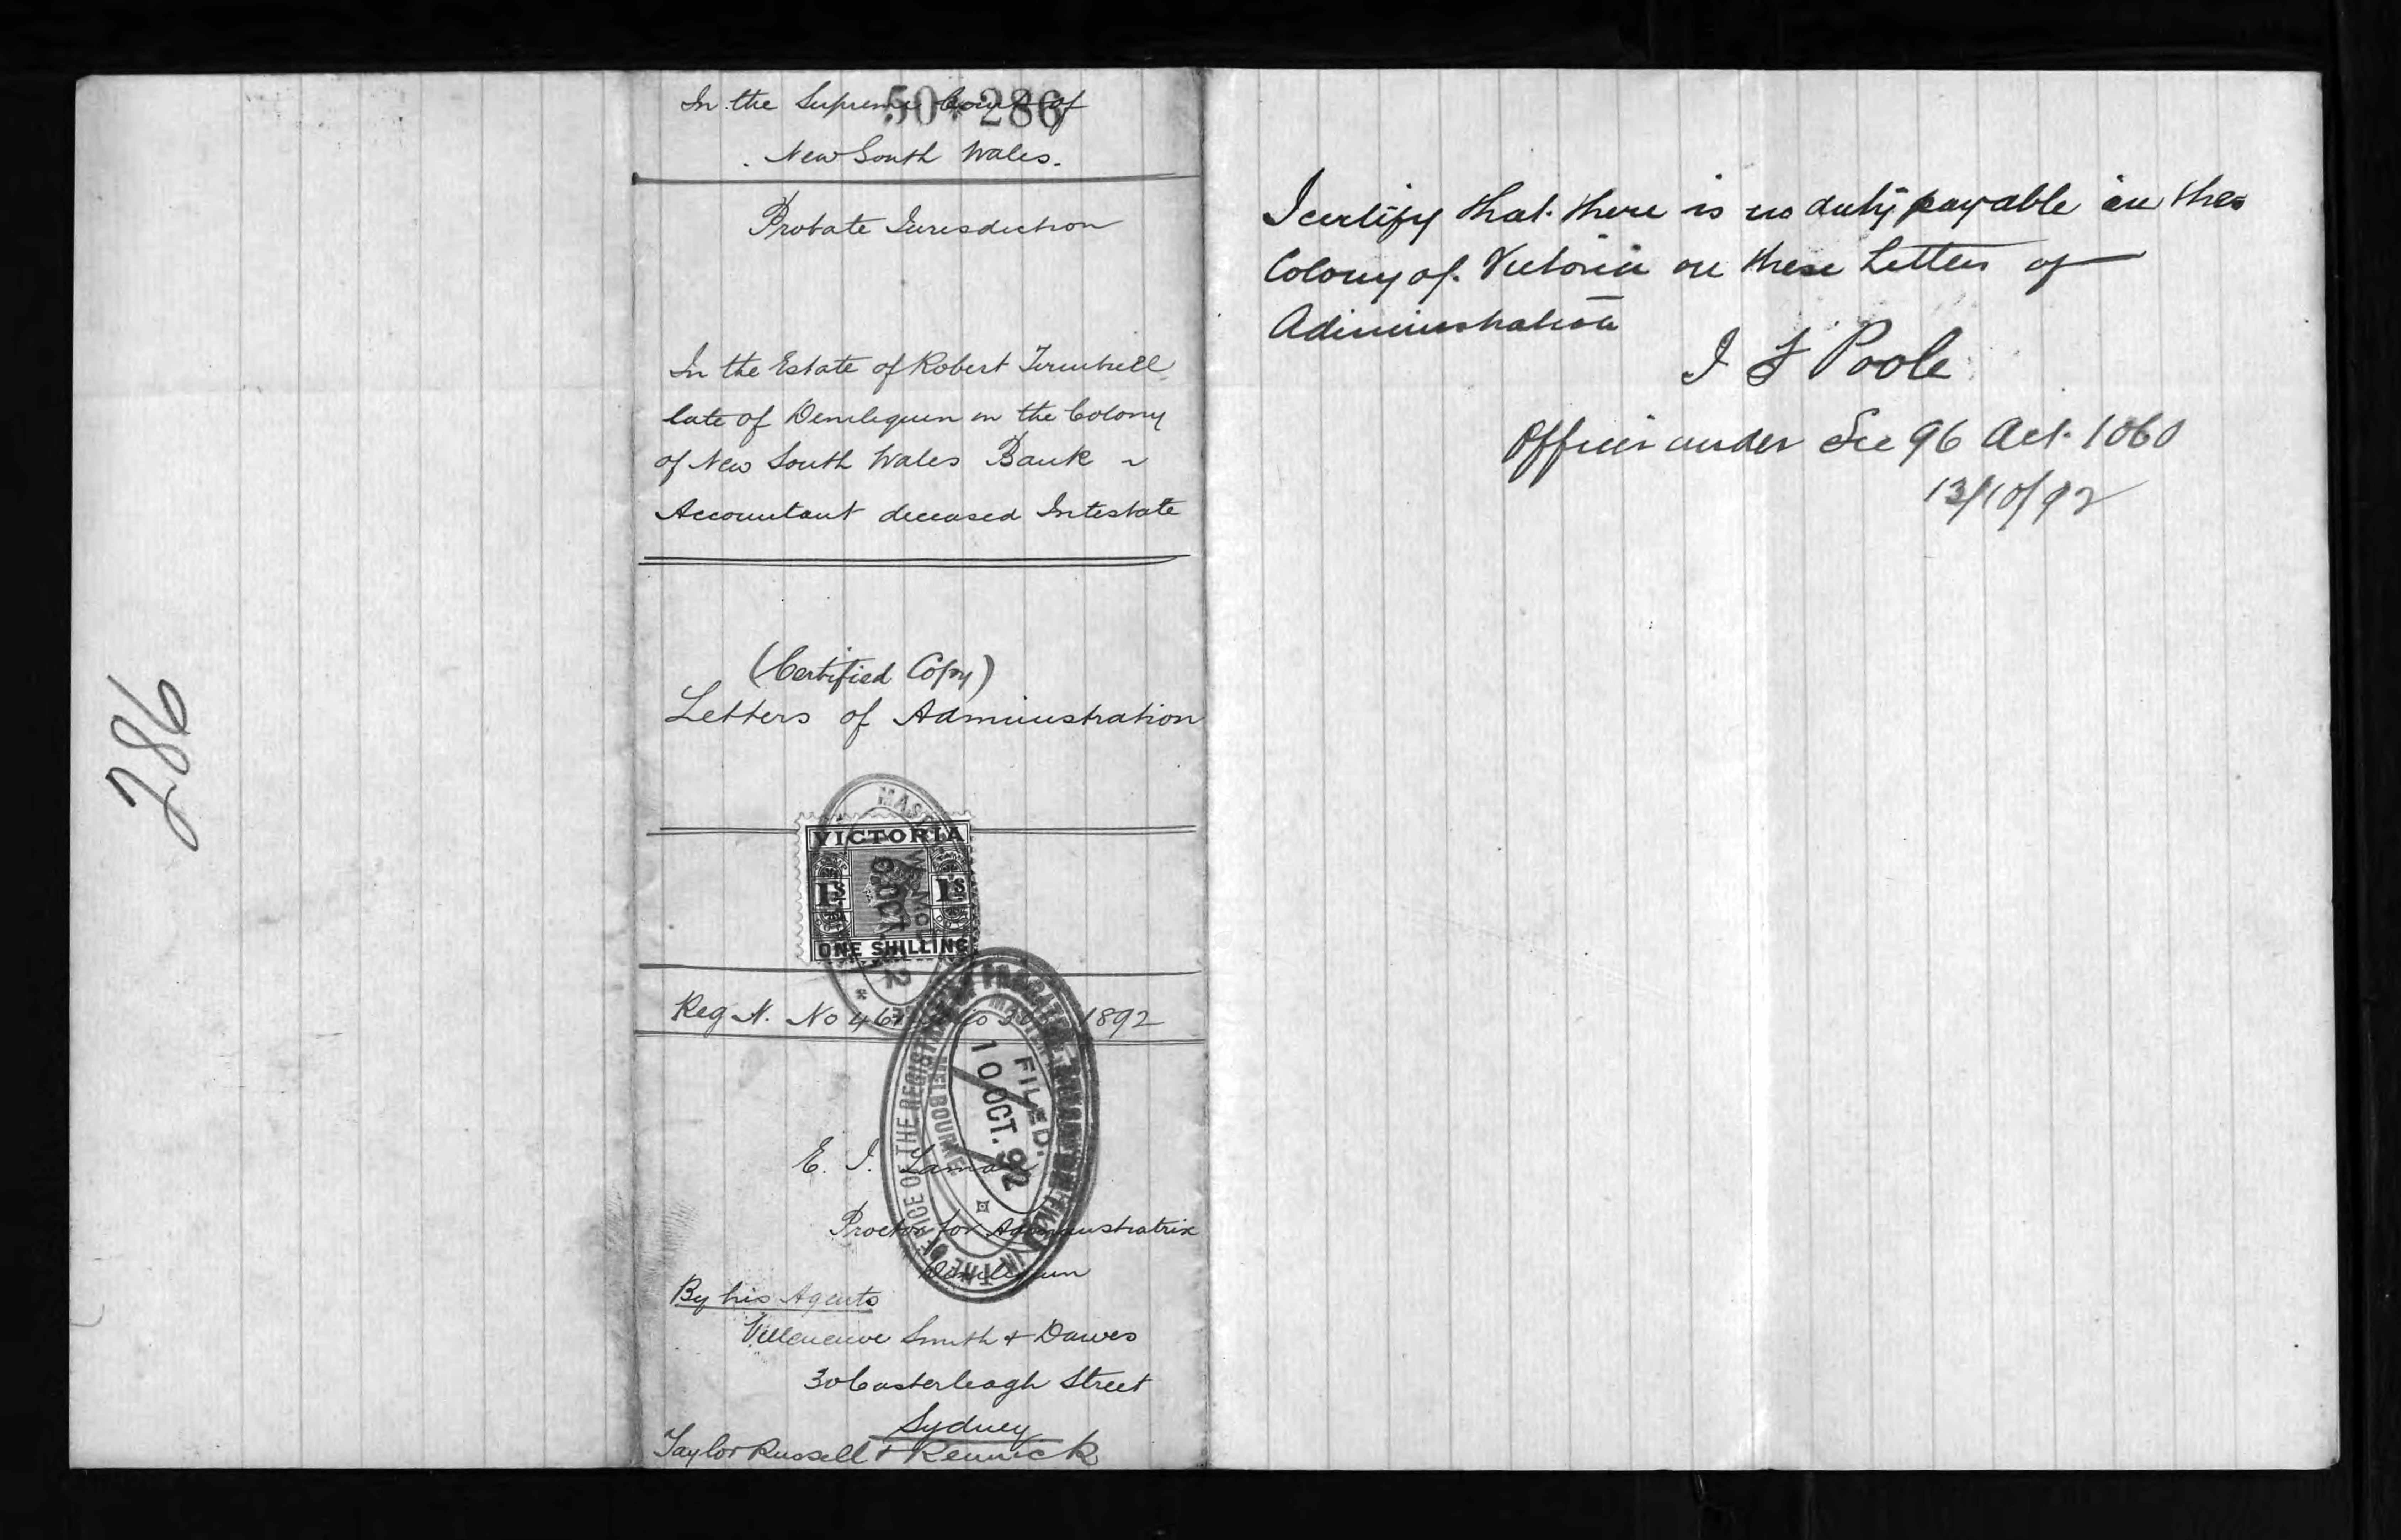 286
50*286
In the Supreme Court of
New South Wales.
Probate Jurisdiction
In the Estate of Robert Turnbull
late of Deniliquin in the Colony
of New South Wales Bank
Accountant deceased Intestate
(Certified Copy)
Letters of Administration
VICTORIA
1S 1S
ONE SHILLING
Reg N. No 1892
FILED.
10 OCT. 92
MELBOURNE
OFFICE OF THE REGISTRAR
E. J.
Proctor for Administratrix
Deniliquin
By his Agents
Villeneuve Smith & Dawes
30 Castlereagh Street
Sydney
Taylor Russell & Rennick
I certify that there is no duty payable in the
Colony of Victoria on these Letters of
Administration
J F Poole
Officer under Sec 96 Act 1060
13/10/92